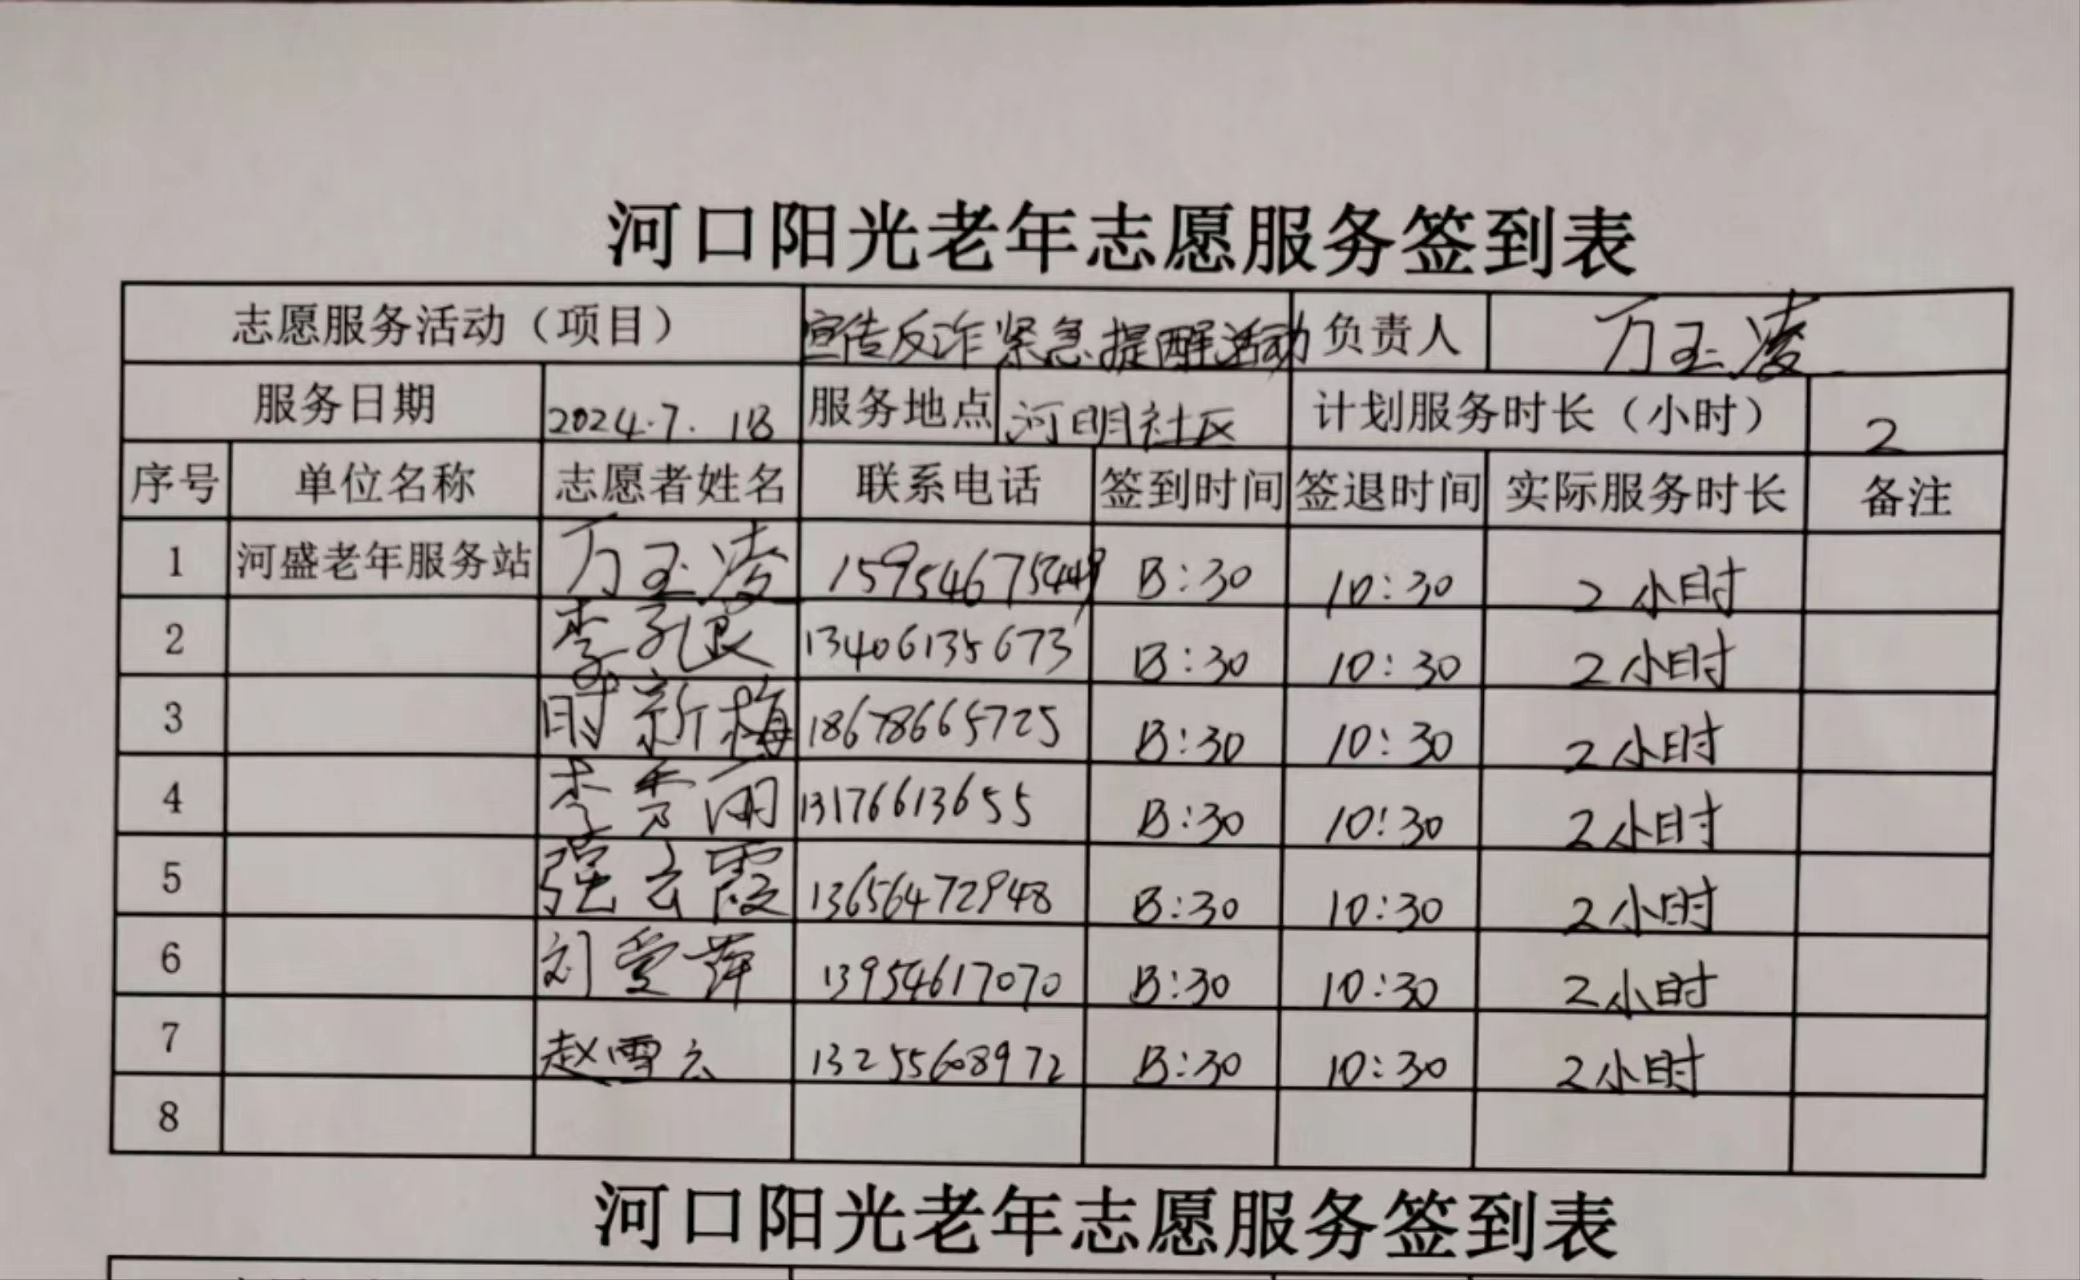 河口阳光老年志愿服务签到表
志愿服务活动（项目） 宣传反诈紧急提醒活动 负责人 万玉凌
服务日期 2024.7. 服务地点 河明社区 计划服务时长（小时） 2
序号 单位名称 志愿者姓名 联系电话 签到时间 签退时间 实际服务时长 备注
1 河盛老年服务站 万玉凌 8:30 10:30 2小时
2 13406135673 8:30 10:30 2小时
3 时新梅 18678665725 8:30 10:30 2小时
4 李秀丽 13176613655 8:30 10:30 2小时
5 张云霞 13656472948 8:30 10:30 2小时
6 刘爱萍 13954617070 8:30 10:30 2小时
7 赵雪云 13255608972 8:30 10:30 2小时
8
河口阳光老年志愿服务签到表